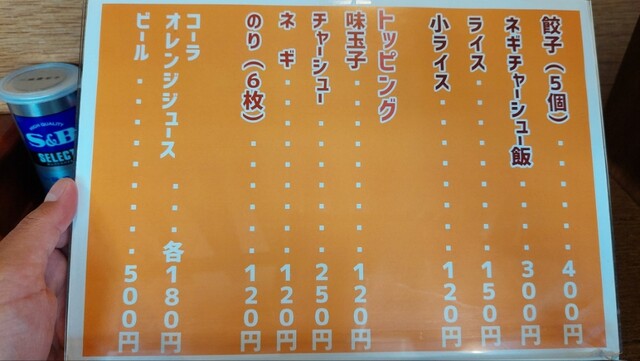 餃子（5個）・・・・・・・400円
ネギチャーシュー飯・・・・300円
ライス・・・・・・・・・150円
小ライス・・・・・・・・120円
トッピング
味玉子・・・・・・・・・120円
チャーシュー・・・・・・・250円
ネギ・・・・・・・・・・120円
のり（6枚）・・・・・・・120円
コーラ
オレンジジュース・・・各180円
ビール・・・・・・・・・500円
HIGH QUALITY
S&B
SELECT